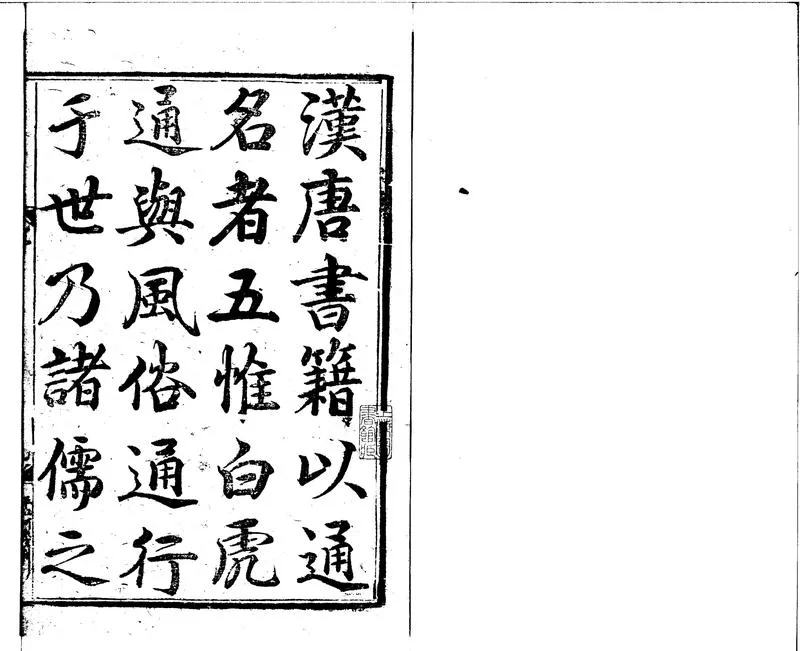 漢唐書籍以通
名者五惟白虎
通與風俗通行
于世乃諸儒之